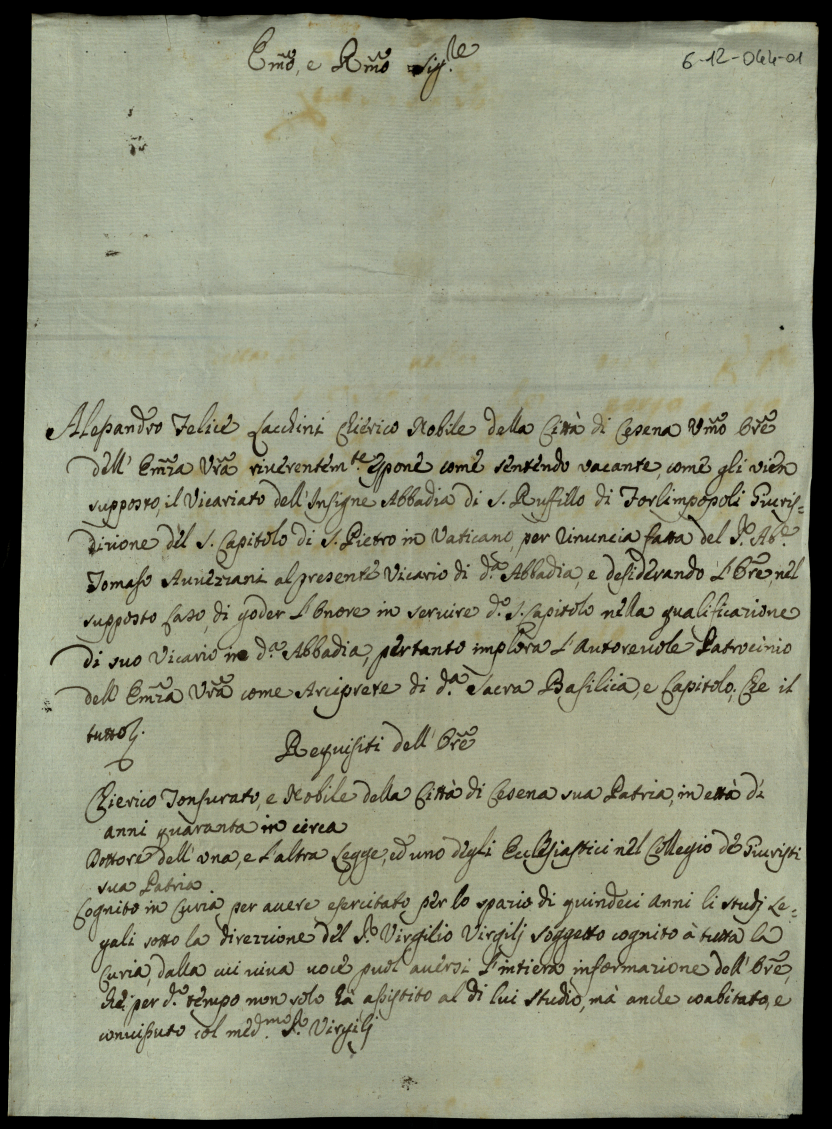 6-12-044-01
Em̃o, e Rm̃o Sig.re
Alessandro Felice Lacchini Chierico Nobile della Città di Cesena Vm̃o Ore
dell' Em̃za Vr̃a riverentem.te espone come sentendo vacante, come gli vien
supposto, il Vicariato dell'Insigne Abbadia di S. Ruffillo di Forlimpopoli Giuris=
dizione del S. Capitolo di S. Pietro in Vaticano, per rinuncia fatta del S.r Ab.e
Tomaso al presente Vicario di d.a Abbadia, e desiderando l'Ore, nel
supposto caso, di goder l'Onore in servire d.o S. Capitolo nella qualificazione
di suo Vicario in d.a Abbadia, pertanto implora l'Autorevole Patrocinio
dell' Em̃za Vr̃a come Arciprete di d.a Sacra Basilica, e Capitolo. Che il
tutto
Requisiti dell' Ore
Chierico Tonsurato, e Nobile della Città di Cesena sua Patria, in età di
anni quaranta in circa
Dottore dell' una, e l'altra Legge, ed uno degli Ecclesiastici nel Collegio de Giuristi
sua Patria
Cognito in Curia per avere esercitato per lo spazio di quindeci anni li studj Le=
gali sotto la direzzione del S.r Virgilio Virgilj soggetto cognito à tutta la
Curia, dalla cui viva voce puol' aversi l'intiera informazione dell' Ore,
che per d.o tempo non solo hà assistito al di lui studio, mà anche coabitato, e
convissuto col med.mo S.r Virgilj